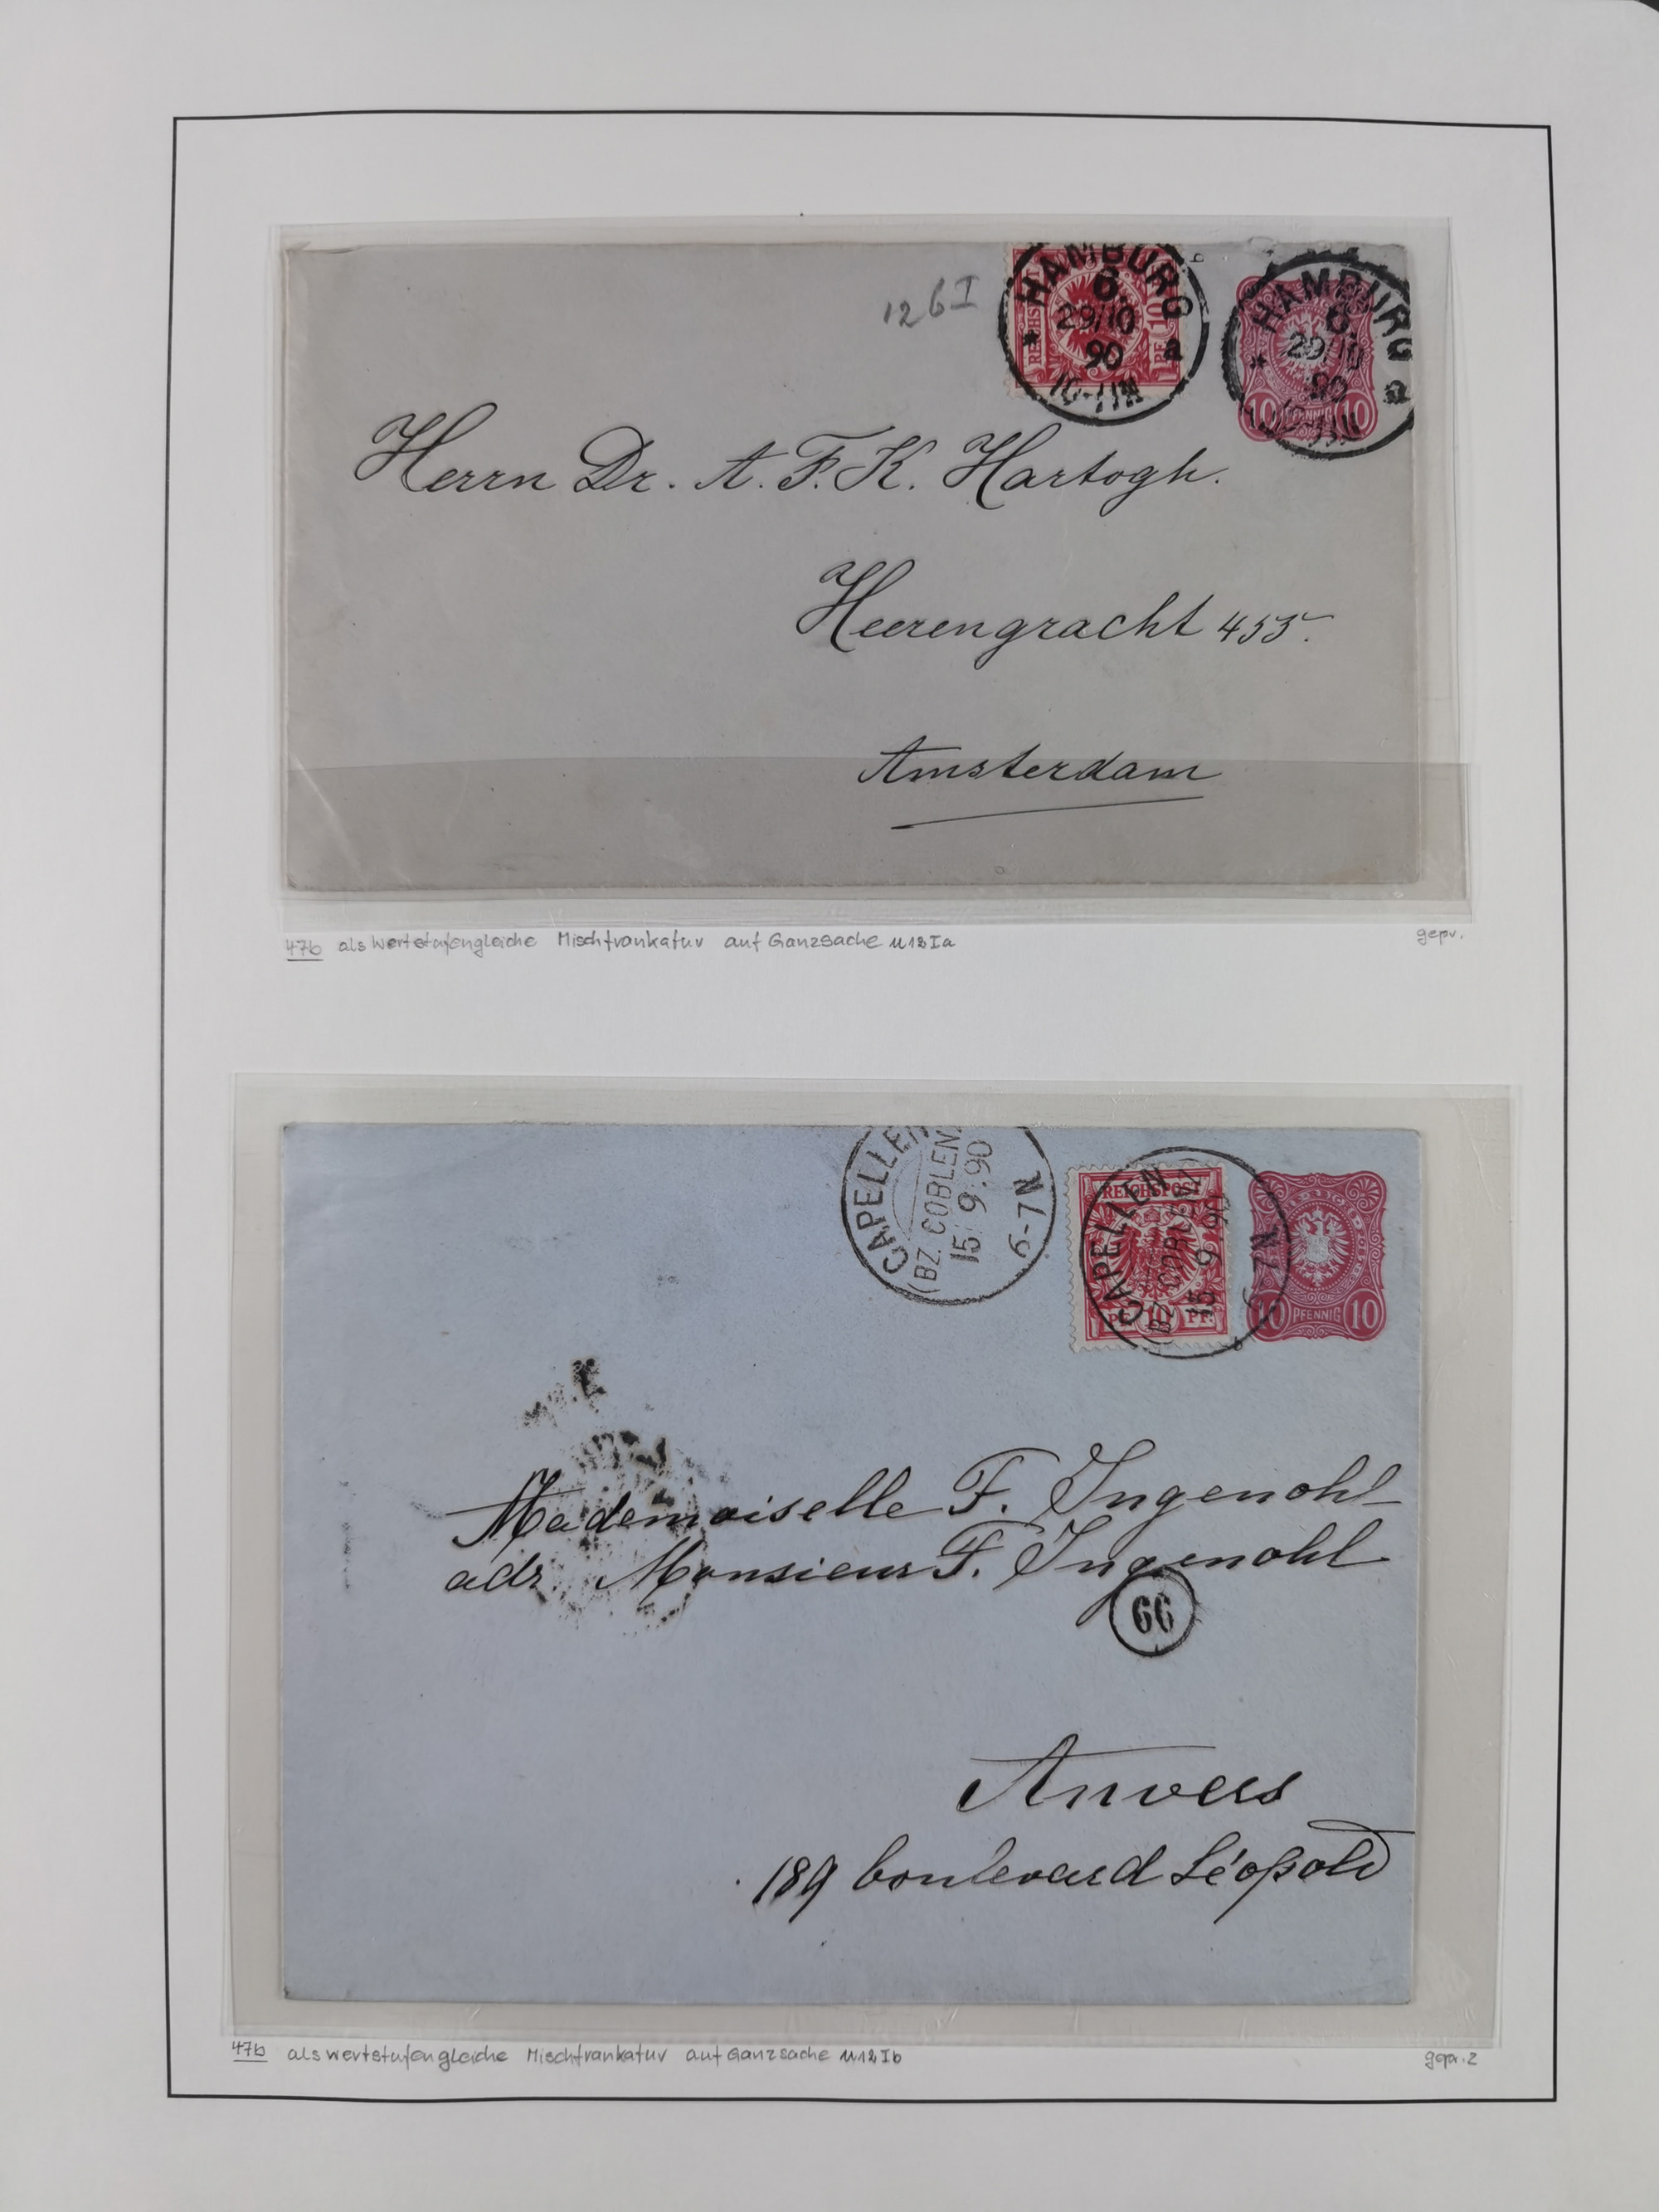 12 6 I
HAMBURG
6.
29/10
90
* a
10-11N
REICHSPOST
10
HAMBURG
6.
29/10
90
* a
10-11N
10 PFENNIG 10
Herrn Dr. A. F. K. Hartogh.
Heerengracht 455.
Amsterdam
47b als wertstufengleiche Mischfrankatur auf Ganzsache U12Ia gepr.
CAPELLEN
(BZ. COBLENZ)
15 9. 90
6-7N
REICHSPOST
PF. 10 PF.
CAPELLEN
(BZ. COBLENZ)
15 9 90
6-7N
10 PFENNIG 10
Mademoiselle F. Ingenohl
adr. Monsieur F. Ingenohl
66
Anvers
189 boulevard Léopold
47b als wertstufengleiche Mischfrankatur auf Ganzsache U12Ib gepr. Z